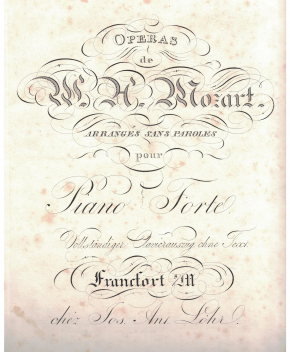 OPERAS
de
W. A. Mozart.
ARRANGÉS SANS PAROLES
pour
Piano Forte
Vollständiger Clavierauszug ohne Text
Francfort s/M
chéz Jos. Ant. Löhr.